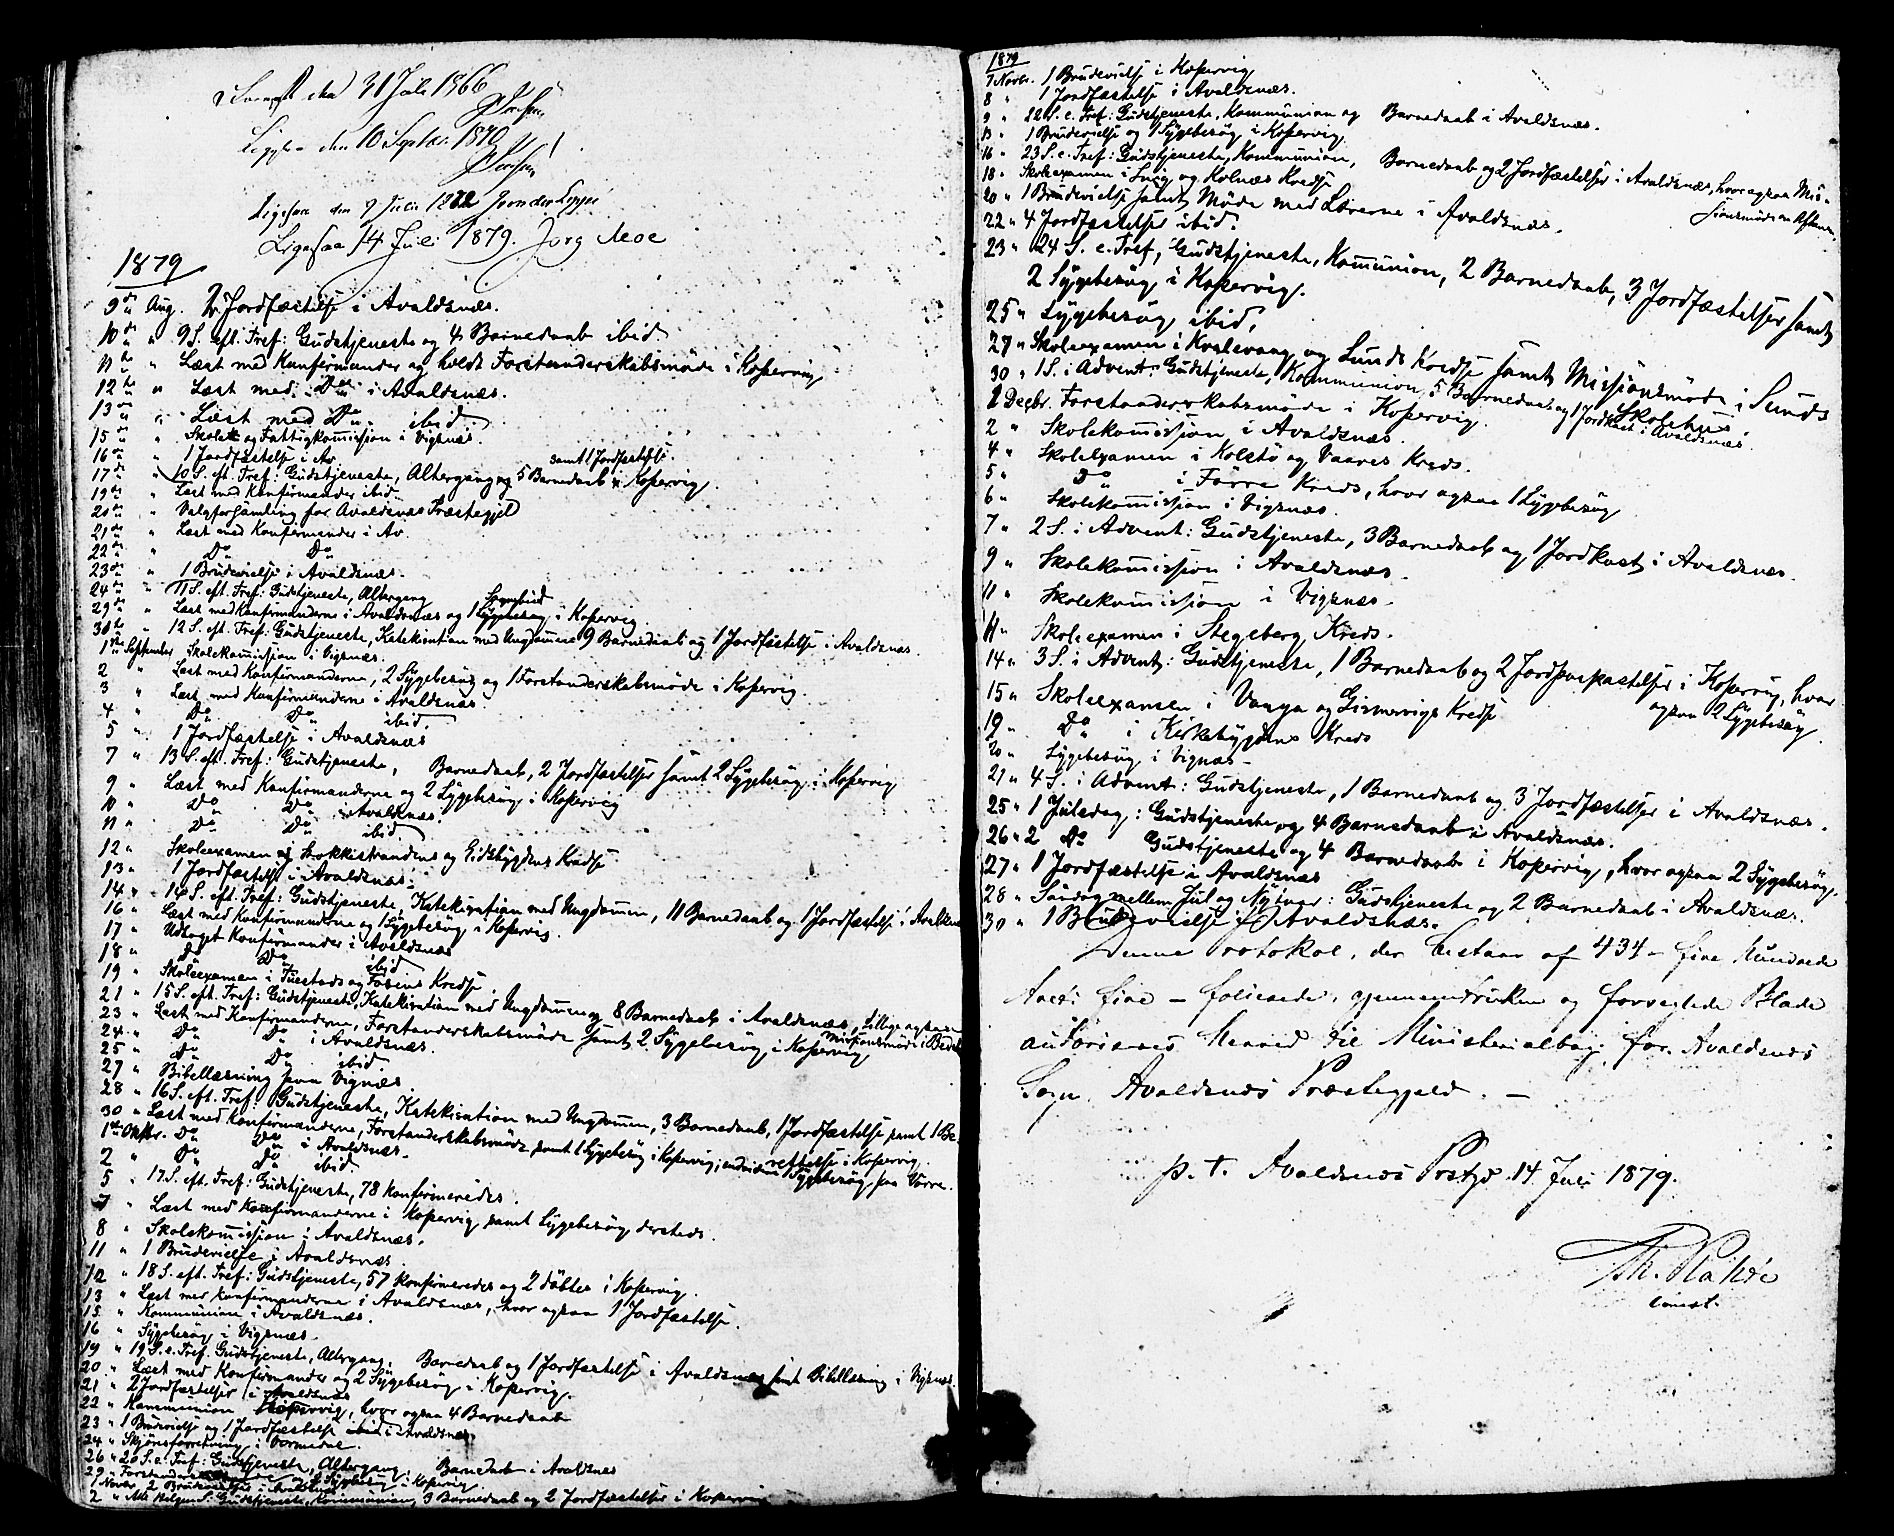 den 31 Juli 1866
den 10 Septbr. 1870
Ligesaa den 9 Juli 1872
Ligesaa 14 Juli 1879. Jørg Moe
1879
9de Aug. 2 Jordfæstelse i Avaldsnæs.
10de " 9 S. eft. Tref: Gudstjeneste og 4 Barnedaab ibid
11te " Læst med Konfirmander og holdt Forstanderskabsmøde i Kopervig
12te " Læst med Do i Avaldsnæs.
13de " Læst med Do ibid.
15de " Skole og Fattigkommission i Vigsnæs.
16de " 1 Jordfæstelse i Av.
17de " 10 S. eft. Tref: Gudstjeneste, Altergang og 5 Barnedaab i Kopervig samt 1 Jordfæstelse.
19de " Læst med Konfirmander ibid.
20de " Valgforsamling for Avaldsnæs Præstegjeld
21de " Læst med Konfirmander i Av.
22de " Do Do
23de " 1 Brudevielse i Avaldsnæs.
24de " 11 S. eft. Tref: Gudstjeneste, Altergang
29de " Læst med Konfirmanderne i Avaldsnæs og 1 Sygebesøg i Kopervig.
30te " 12 S. eft. Tref: Gudstjeneste, Katekisation med Ungdommen 9 Barnedaab og 1 Jordfæstelse i Avaldsnæs.
1ste September Skolekommission i Vigsnæs.
2 " Læst med Konfirmanderne, 2 Sygebesøg og 1 Forstanderskabsmøde i Kopervig.
3 " Læst med Konfirmanderne i Avaldsnæs.
4 " Do Do ibid
5 " 1 Jordfæstelse i Avaldsnæs
7 " 13 S. eft. Tref: Gudstjeneste, Barnedaab, 2 Jordfæstelser samt 2 Sygebesøg i Kopervig
9 " Læst med Konfirmanderne og 2 Sygebesøg i Kopervig
10 " Do Do i Avaldsnæs.
11 " Do Do ibid
12 " Skoleexamen i Stokkestrandens og Eidsbygdens Kredse
13 " 1 Jordfæstelse i Avaldsnæs.
14 " 14 S. eft. Tref: Gudstjeneste, Katekisation med Ungdommen, 11 Barnedaab og 1 Jordfæstelse i Avaldsnæs
16 " Læst med Konfirmanderne og 1 Sygebesøg i Kopervig
17 " Udtaget Konfirmander i Avaldsnæs
18 " Do Do ibid
19 " Skoleexamen i og Kredse.
21 " 15 S. eft. Tref: Gudstjeneste, Katekisation med Ungdommen og 8 Barnedaab i Avaldsnæs, tillige ogsaa Missionsmøde i
23 " Læst med Konfirmanderne, Forstanderskabsmøde samt 2 Sygebesøg i Kopervig
24 " Do Do i Avaldsnæs.
25 " Do Do ibid.
27 " Bibellæsning paa Vignæs
28 " 16 S. eft. Tref: Gudstjeneste, Katekisation med Ungdommen, 3 Barnedaab, 1 Jordfæstelse samt 1 Be-
30 " Læst med Konfirmanderne, Forstanderskabsmøde samt 1 Sygebesøg i Kopervig, endvidere 1 Sygebesøg paa Vorre.
1ste Oktbr. Do Do i Avaldsnæs.
2 " Do Do ibid
5 " 17 S. eft. Tref: Gudstjeneste, 78 konfirmeredes.
7 " Læst med Konfirmanderne i Kopervig samt Sygebesøg dersteds.
8 " Skolekommission i Avaldsnæs.
11 " 1 Brudevielse i Avaldsnæs
12 " 18 S. eft. Tref: Gudstjeneste, 57 konfirmeredes og 2 døbtes i Kopervig.
13 " Læst med Konfirmanderne i Avaldsnæs, hvor ogsaa 1 Jordfæstelse.
15 " Kommunion i Avaldsnæs.
16 " Sygebesøg i Vigsnæs.
19 " 19 S. e. Tref. Gudstjeneste, Altergang, Barnedaab og 1 Jordfæstelse i Avaldsnæs samt Bibellæsning i Vigsnæs.
20 " Læst med Konfirmander og 2 Sygebesøg i Kopervig.
21 " 2 Jordfæstelser i Avaldsnæs
22 " Kommunion Kopervig, hvor ogsaa 4 Barnedaab
23 " 1 Brudevielse og 1 Jordfæstelse i Avaldsnæs
24 " Skjønsforretning i Vormedal.
26 " 20 S. e. Tref: Gudstjeneste, Altergang, Barnedaab i Avaldsnæs
29 " og 2 Sygebesøg i Kopervig
1 Novbr. 2 Brudevielser i Avaldsnæs
2 " Alle Helgens S. Gudstjeneste, Kommunion, 3 Barnedaab og 2 Jordfæstelser i Kopervig
1879
7 Novbr. 1 Brudevielse i Kopervig
8 " 1 Jordfæstelse i Avaldsnæs.
9 " 22 S. e. Tref: Gudstjeneste, Kommunion og Barnedaab i Avaldsnæs.
13 " 1 Brudevielse og 1 Sygebesøg i Kopervig
16 " 23 S. e. Tref: Gudstjeneste, Kommunion, Barnedaab og 2 Jordfæstelser i Avaldsnæs, hvor ogsaa Mis-
sionsmøde om Aftenen.
18 " Skoleexamen i Snig og Kolnæs Kredse
20 " 1 Brudevielse samt Møde med Lærerne i Avaldsnæs.
22 " 4 Jordfæstelser ibid.
23 " 24 S. e. Tref, Gudstjeneste, Kommunion, 2 Barnedaab, 3 Jordfæstelser samt
2 Sygebesøg i Kopervig.
25 " Sygebesøg ibid.
27 " Skoleexamen i Kvalevaag og Sunds Kredse samt Missionsmøde i Sunds
Skolehus.
30 " 1 S. i Advent: Gudstjeneste, Kommunion, 5 Barnedaab og 1 Jordkast i Avaldsnæs.
1 Decbr. Forstanderskabsmøde i Kopervig.
2 " Skolekommission i Avaldsnæs.
4 " Skoleexamen i Kolstø og Vaares Kreds.
5 " Do i Førre Kreds, hvor ogsaa 1 Sygebesøg
6 " Skolekommission i Vigsnæs.
7 " 2 S. i Advent: Gudstjeneste, 3 Barnedaab og 1 Jordkast i Avaldsnæs.
9 " Skolekommission i Avaldsnæs.
11 " Skolekommission i Vigsnæs.
11 " Skoleexamen i Stegeberg Kreds.
14 " 3 S. i Advent: Gudstjeneste, 1 Barnedaab og 2 Jordpaakastelser i Kopervig, hvor
ogsaa 2 Sygebesøg
15 " Skoleexamen i Vaaga og Gismervigs Kredse
19 " Do i Kirkebygdens Kreds
20 " Sygebesøg i Vignæs
21 " 4 S. i Advent: Gudstjeneste, 1 Barnedaab og 3 Jordfæstelser i Avaldsnæs.
25 " 1 Juledag: Gudstjeneste og 4 Barnedaab i Avaldsnæs.
26 " 2 Do Gudstjeneste og 4 Barnedaab i Kopervig, hvor ogsaa 2 Sygebesøg.
27 " 1 Jordfæstelse i Avaldsnæs
28 " Søndag mellem Jul og Nytaar: Gudstjeneste og 2 Barnedaab i Avaldsnæs.
30 " 1 Brudevielse i Avaldsnæs.
Denne Protokol, der bestaar af 434 - fire Hundrede
fire - folierede, gjennemtrukne og forseglede Blade
autoriseres herved til Ministerialbog for Avaldsnæs
Sogn, Avaldsnæs Præstegjeld. -
p. t. Avaldsnæs Prstgd 14 Juli 1879.
const.